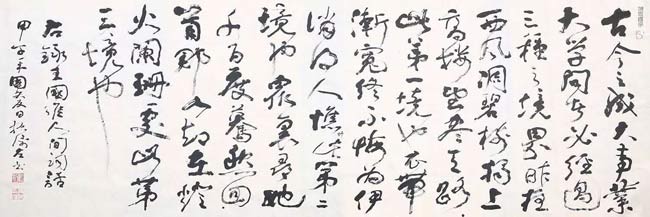 古今之成大事業
大学问者必經過
三種之境界昨夜
西風凋碧樹獨上
高楼望尽天涯路
此第一境也衣帶
漸寬終不悔为伊
消得人憔悴第二
境也眾裏尋他
千百度驀然回
首那人却在燈
火闌珊處此第
三境也
右錄王國維人間詞話
甲午年國慶日於